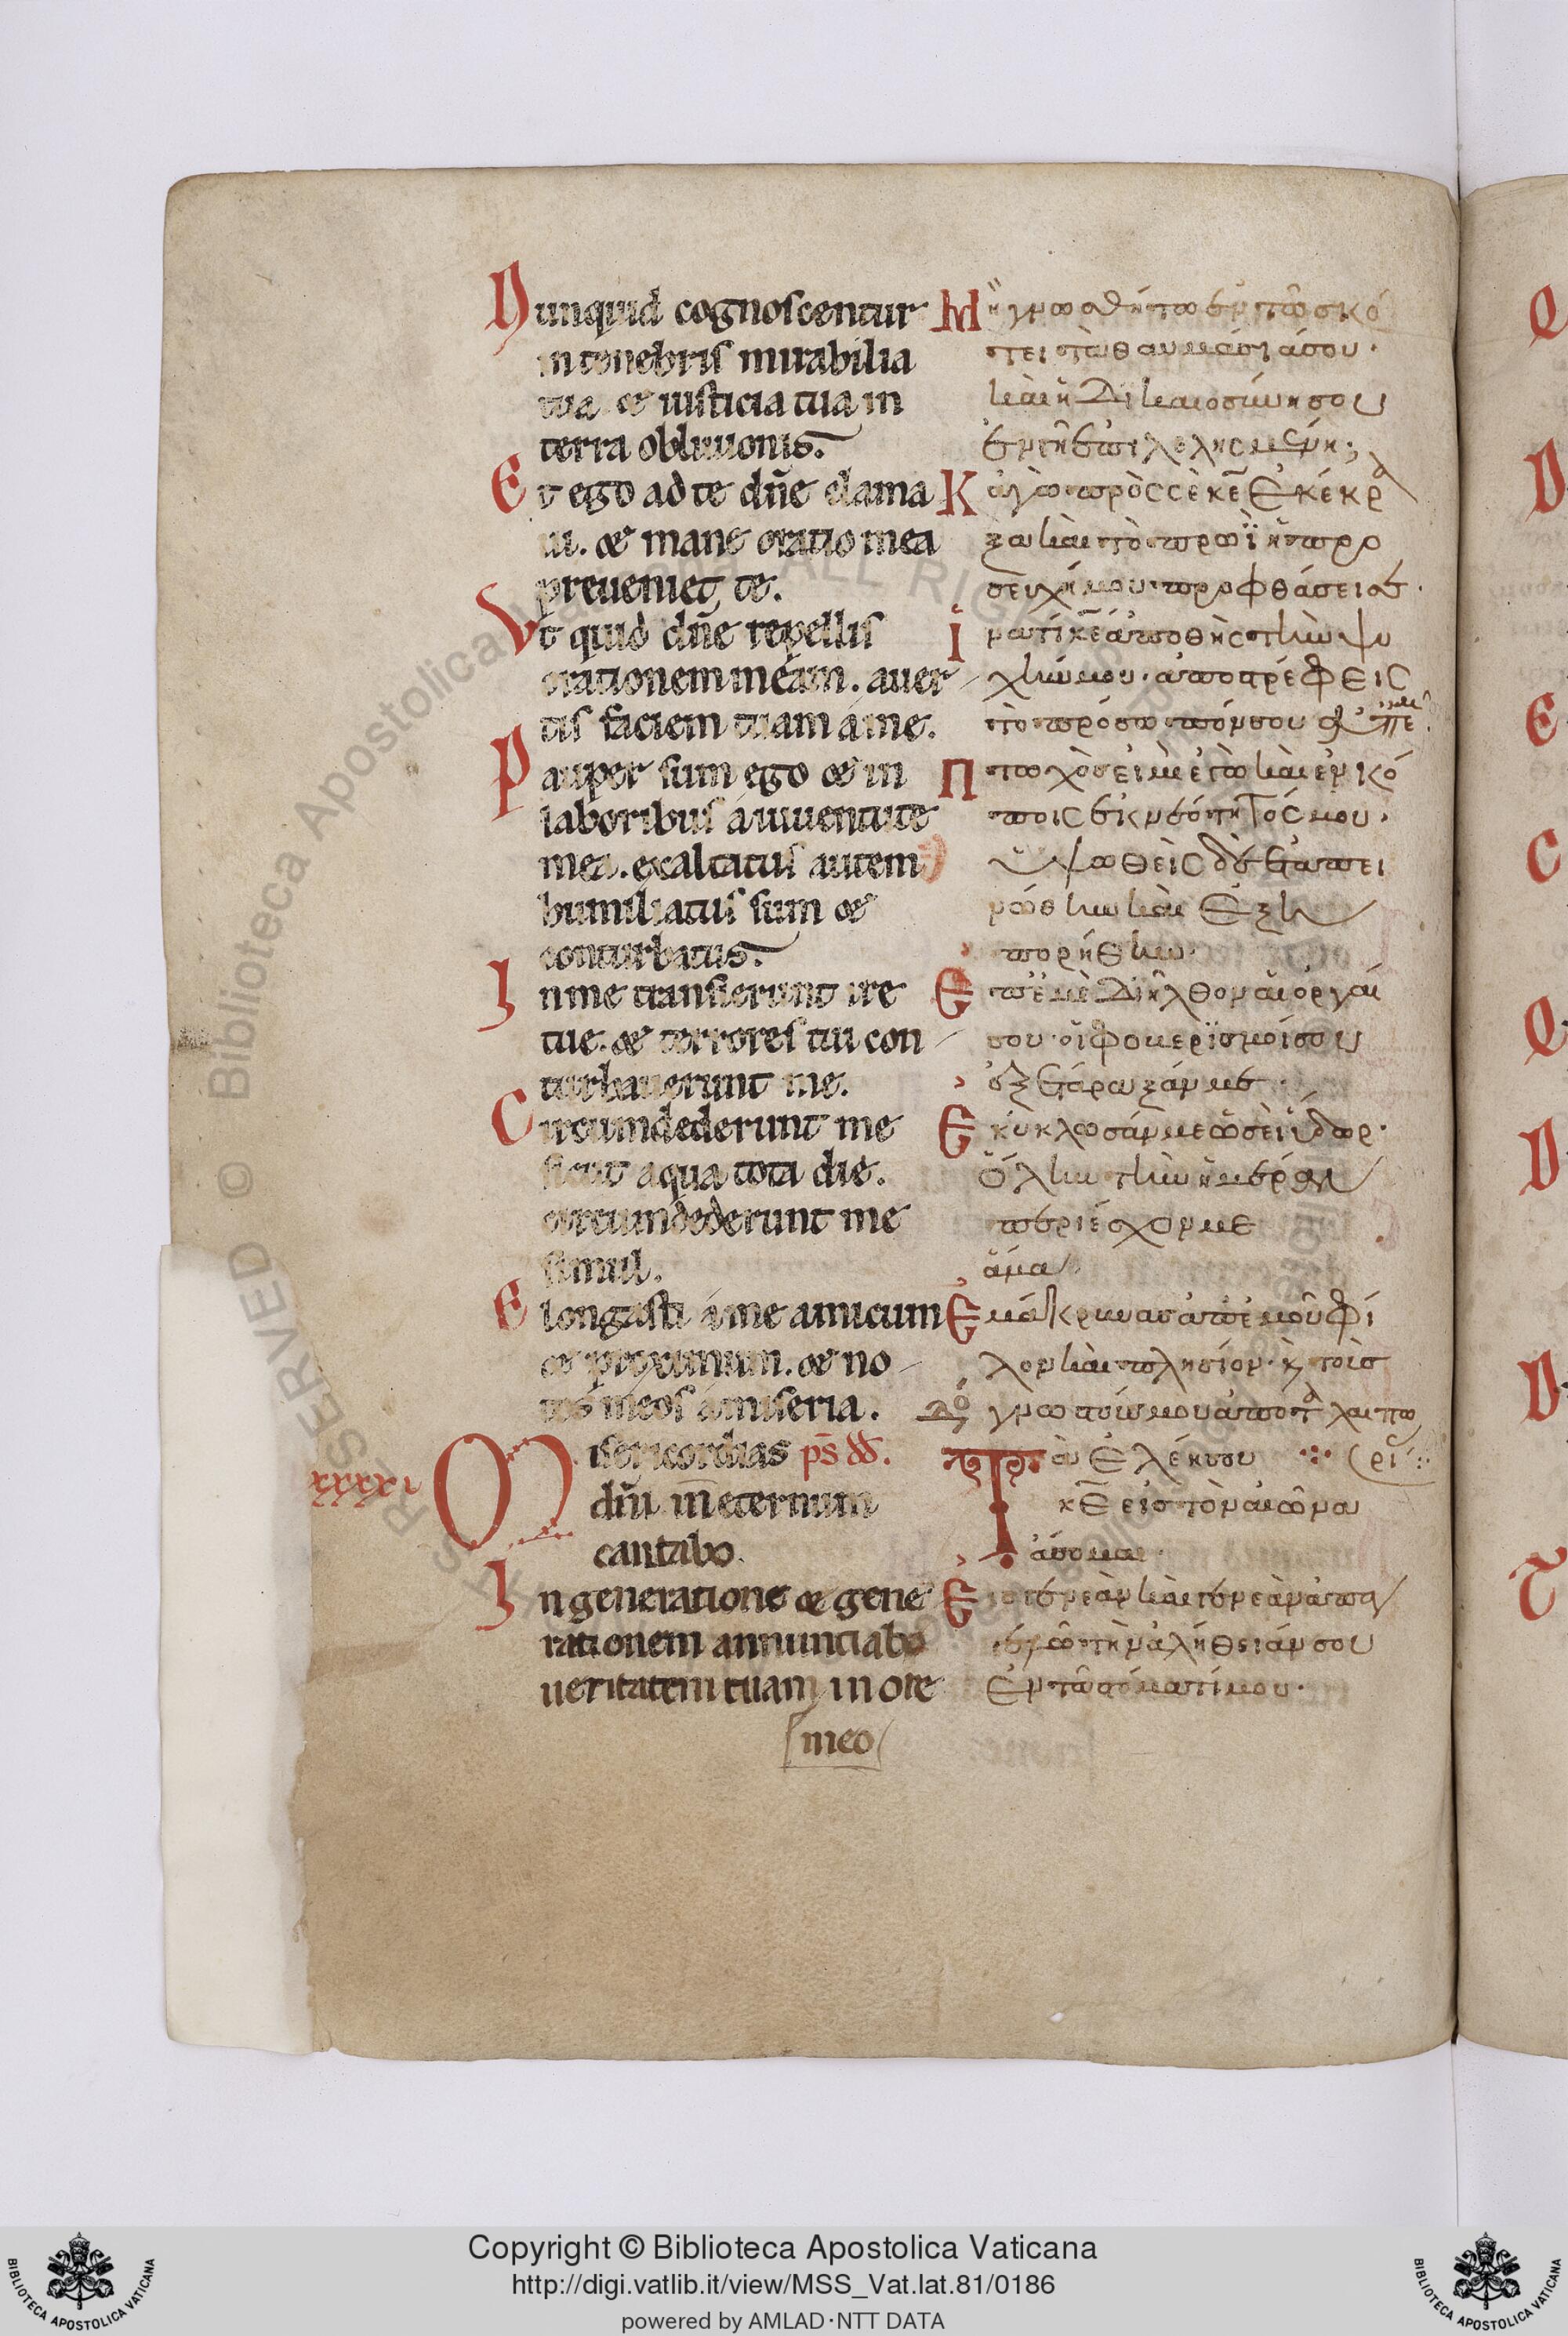 Nunquid cognoscentur
in tenebris mirabilia
tua et iusticia tua in
terra oblivionis.
Et ego ad te dñe clama
ui. et mane oratio mea
preveniet te.
Vt quid dñe repellis
orationem meam. aver
tis faciem tuam a me.
Pauper sum ego et in
laboribus a iuventute
mea. exaltatus autem
humiliatus sum et
conturbatus.
In me transierunt ire
tue. et terrores tui con
turbaverunt me.
Circumdederunt me
sicut aqua tota die.
circumdederunt me
simul.
Elongasti a me amicum
et proximum. et no
tos meos a miseria.
Misericordias ps dd.
xxxxi
dñi in eternum
cantabo.
In generatione et gene
rationem annuntiabo
ueritatem tuam in ore
meo
Μὴ γνωσθήσεται ἐν τῷ σκό
τει τὰ θαυμάσιά σου·
καὶ ἡ δικαιοσύνη σου
ἐν γῇ ἐπιλελησμένῃ;
Κἀγὼ πρὸς σὲ κε ἐκέκρα
ξα καὶ τὸ πρωῒ ἡ προ
σευχή μου προφθάσει σε·
Ἱνατί κε ἀποθῆς τὴν ψυ
χήν μου· ἀποστρέφεις
τὸ πρόσωπόν σου
Πτωχός εἰμι ἐγὼ καὶ ἐν κό
ποις ἐκ νεότητός μου·
ὑψωθεὶς δὲ ἐταπει
νώθην καὶ ἐξη
πορήθην·
Ἐπ' ἐμὲ διῆλθον αἱ ὀργαί
σου· οἱ φοβερισμοί σου
ἐξετάραξάν με·
Ἐκύκλωσάν με ὡσεὶ ὕδωρ·
ὅλην τὴν ἡμέραν
περιέσχον με
ἅμα
Ἐμάκρυνας ἀπ' ἐμοῦ φί
λον καὶ πλησίον· κ τοὺς
γνωστούς μου ἀπὸ ταλαιπω
ρί
Τὰ ἐλέη σου
κε εἰς τὸν αἰῶνα
ᾄσομαι·
Εἰς γενεὰν καὶ γενεὰν ἀπαγ
γελῶ τὴν ἀλήθειάν σου
ἐν τῷ στόματί μου·
Copyright © Biblioteca Apostolica Vaticana
http://digi.vatlib.it/view/MSS_Vat.lat.81/0186
powered by AMLAD·NTT DATA